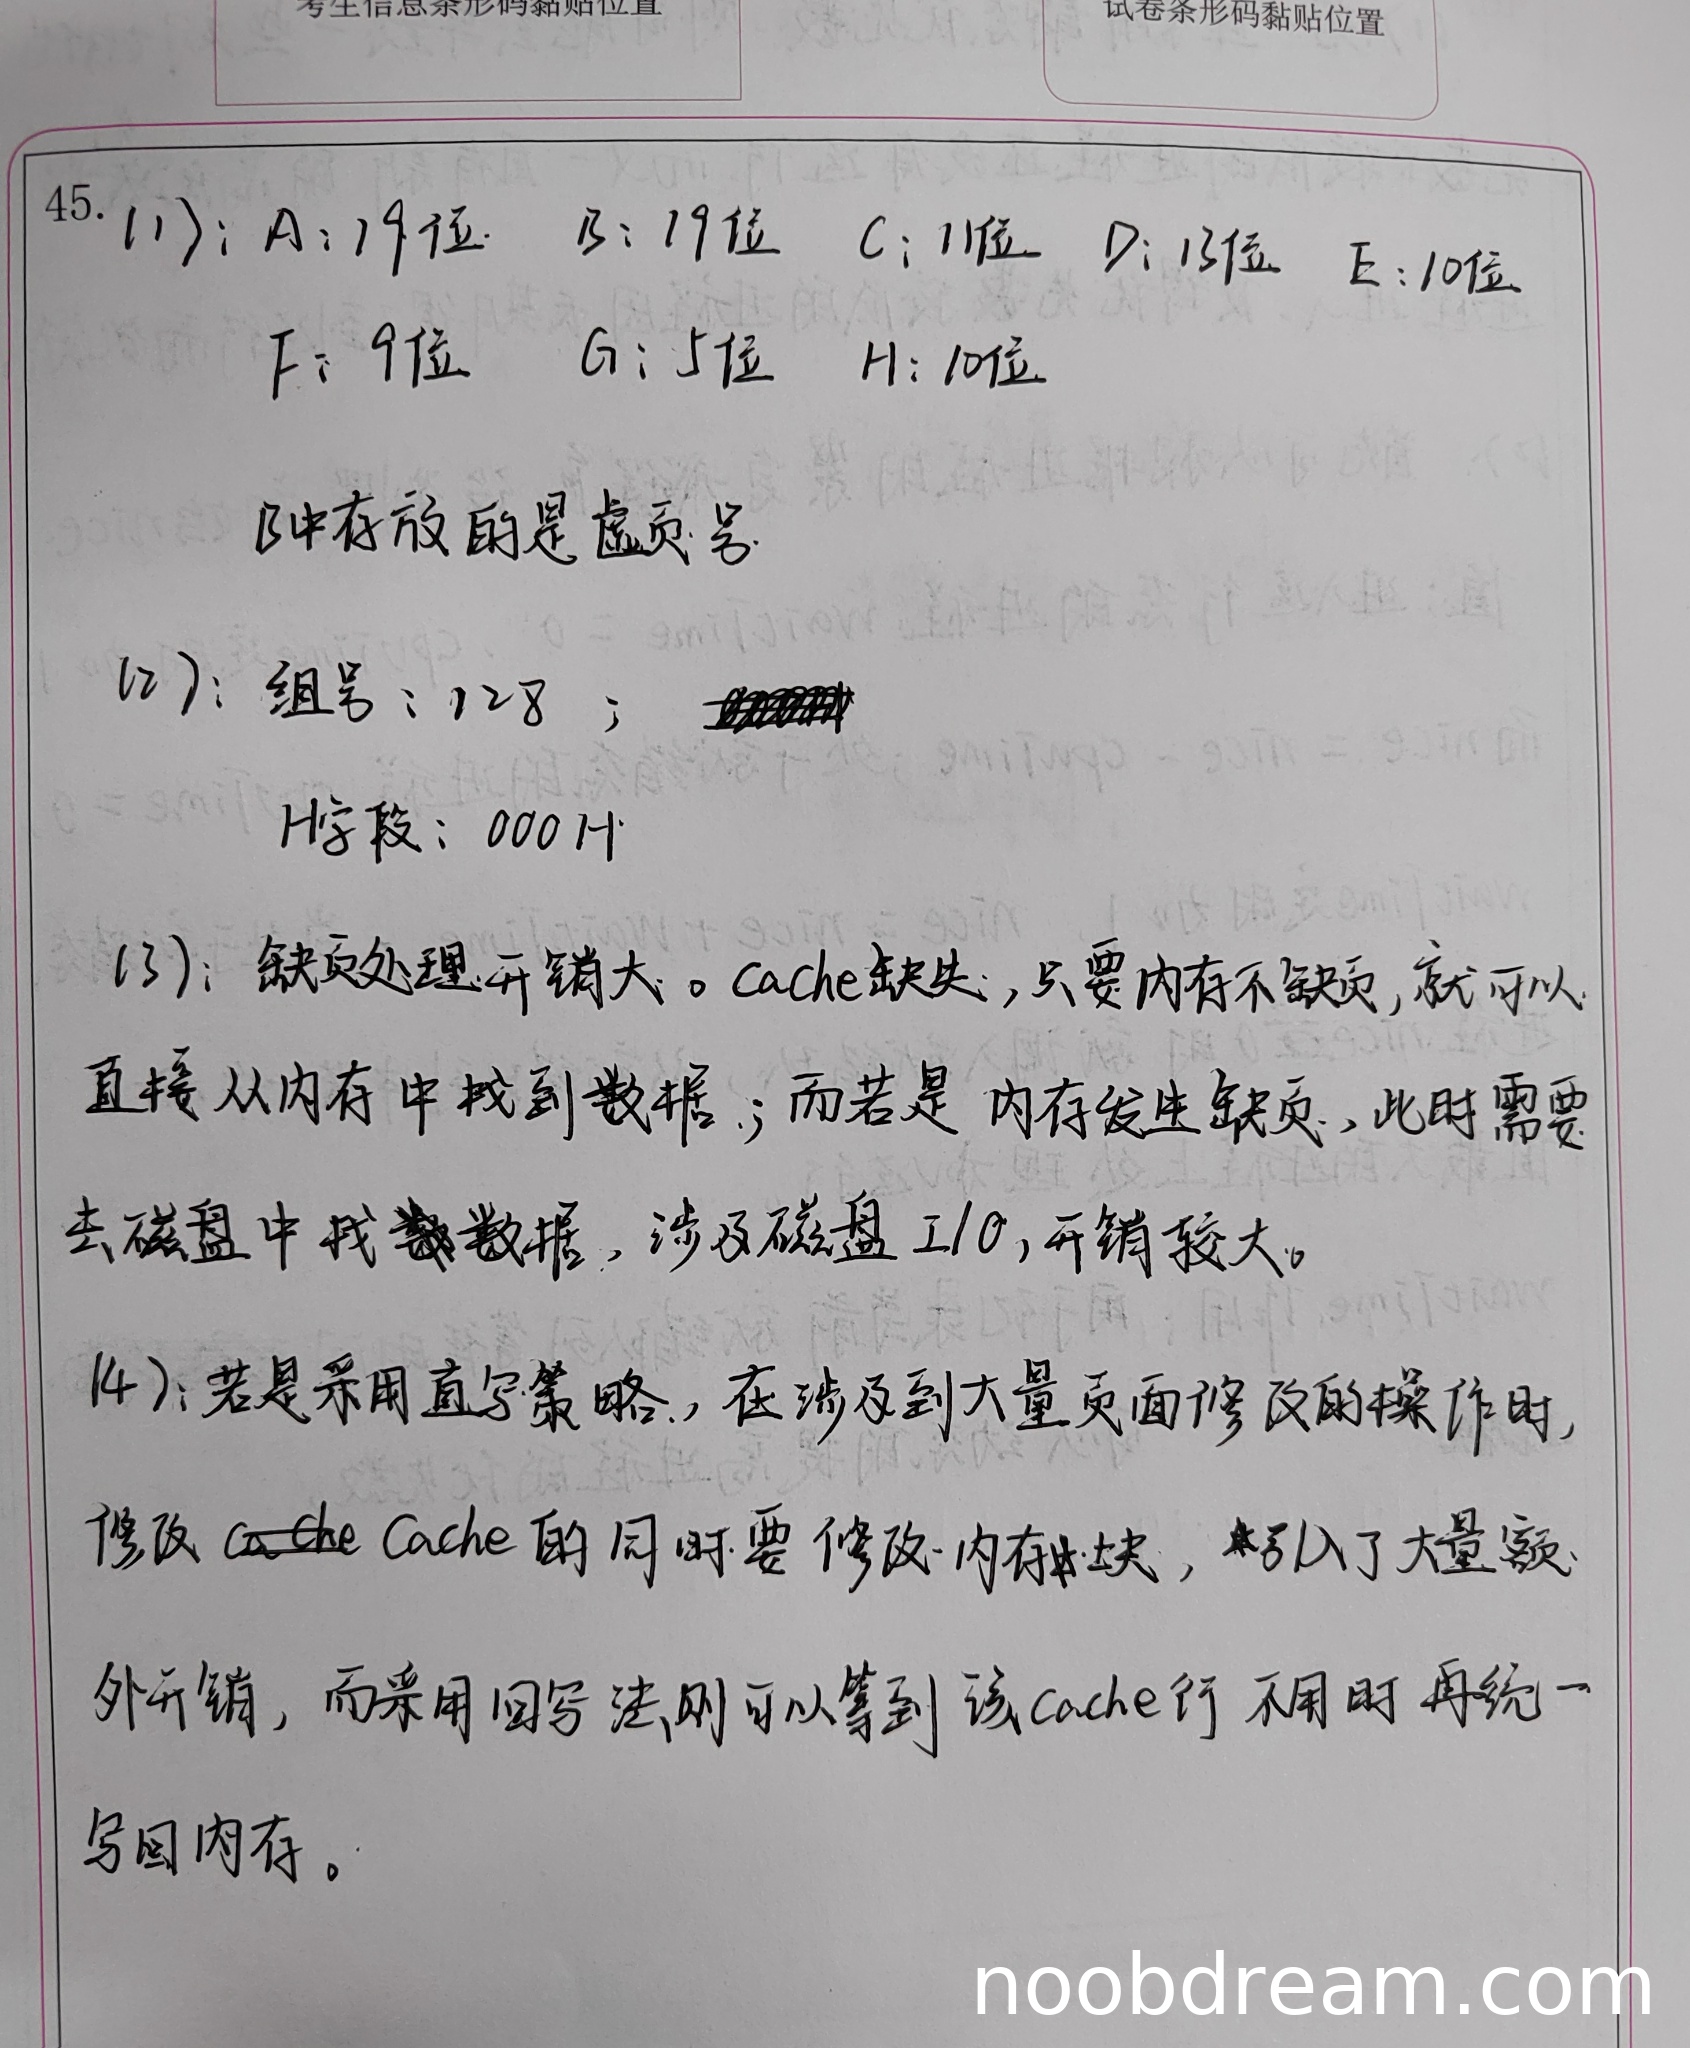 考生信息条形码黏贴位置
试卷条形码黏贴位置
45. (1): A:19位 B:19位 C:11位 D:13位 E:10位
F: 9位 G:5位 H:10位
B中存放的是虚页号
(2): 组号:128;
H字段: 000H
(3): 缺页处理开销大。Cache缺失,只要内存不缺页,就可以
直接从内存中找到数据;而若是内存发生缺页,此时需要
去磁盘中找数据,涉及磁盘I/O,开销较大。
(4): 若是采用直写策略,在涉及到大量页面修改的操作时,
修改 cache Cache的同时要修改内存块,引入了大量额
外开销,而采用回写法则可以等到该cache行不用时再统一
写回内存。
noobdream.com